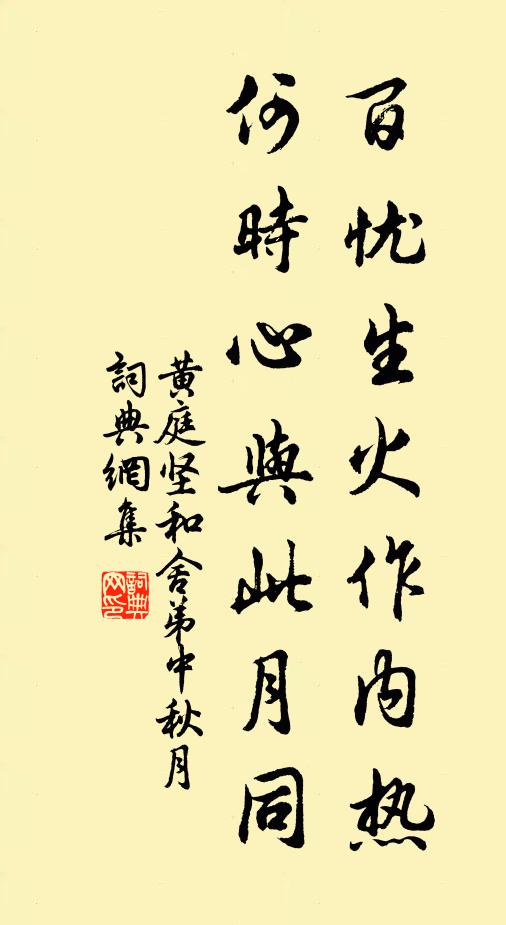 百忧生火作内热
何時心與此月同
黄庭坚和舍弟中秋月
詞典網集
詞典网印